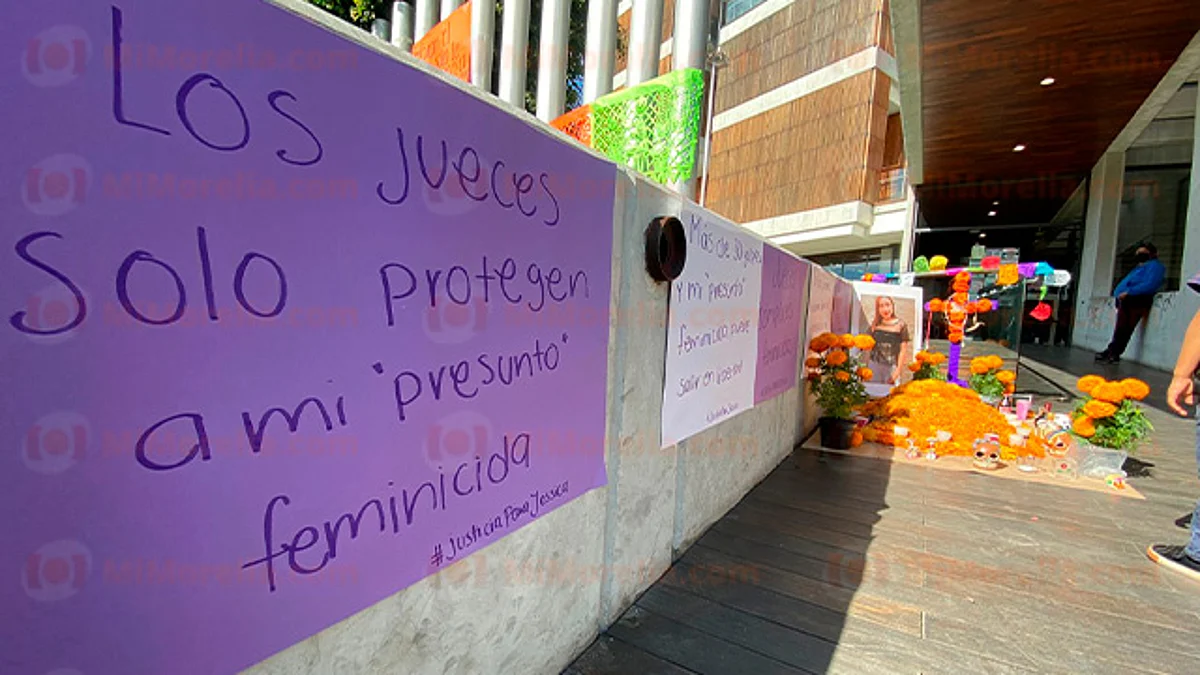 Los jueces
Solo protegen
a mi "presunto"
feminicida
#JusticiaParaJessica
Más de 30 golpes
y mi "presunto"
feminicida puede
salir en libertad
MiMorelia.com